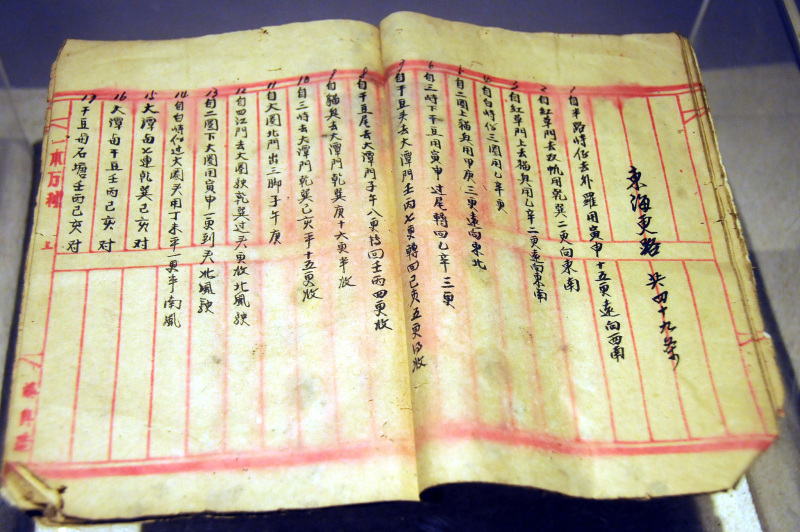 東海更路 共四十九条
1 自半路峙仔去外羅用寅申十五更遠向西南
2 自紅草門去孜帆用乾巽二更向東南
3 自紅草門上去猫兴用乙辛二更遠向東南
4 自白峙仔二圈用乙辛更
5 自二圈上猫兴用甲庚三更遠向東北
6 自三峙下干豆用寅申过尾轉回乙辛三更
7 自干豆头去大潭門壬丙七更轉回己亥五更收
8 自干豆尾去大潭門子午八更轉回壬丙四更收
9 自猫兴去大潭門乾巽庚十六更半收
10 自三峙去大潭門乾巽己亥平十五更收
11 自大圈北門出三脚子午庚
12 自四江門去大圈駛乾巽过头更收北風駛
13 自二圈下大圈用寅申一更到头北風駛
14 自白峙仔过大圈头用丁未平一更半南風
15 大潭与七連乾巽己亥对
16 大潭与干豆壬丙己亥对
17 干豆与石塘壬丙己亥对
一本万利